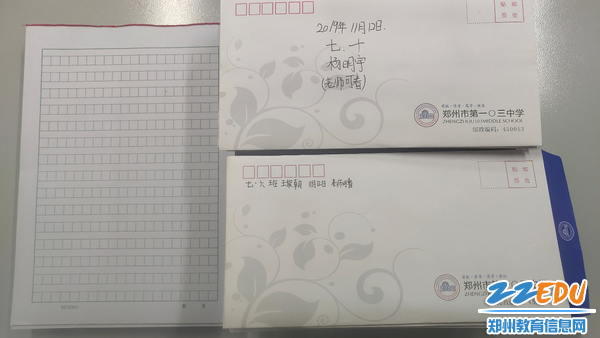 贴 邮
票 处
2019年11月12日.
七.十
杨明宇
(老师可看)
郑州市第一〇三中学
ZHENGZHOU 103 MIDDLE SCHOOL
邮政编码：450053
贴 邮
票 处
七.六班
郑州市第
ZZEDU
郑州教育信息网